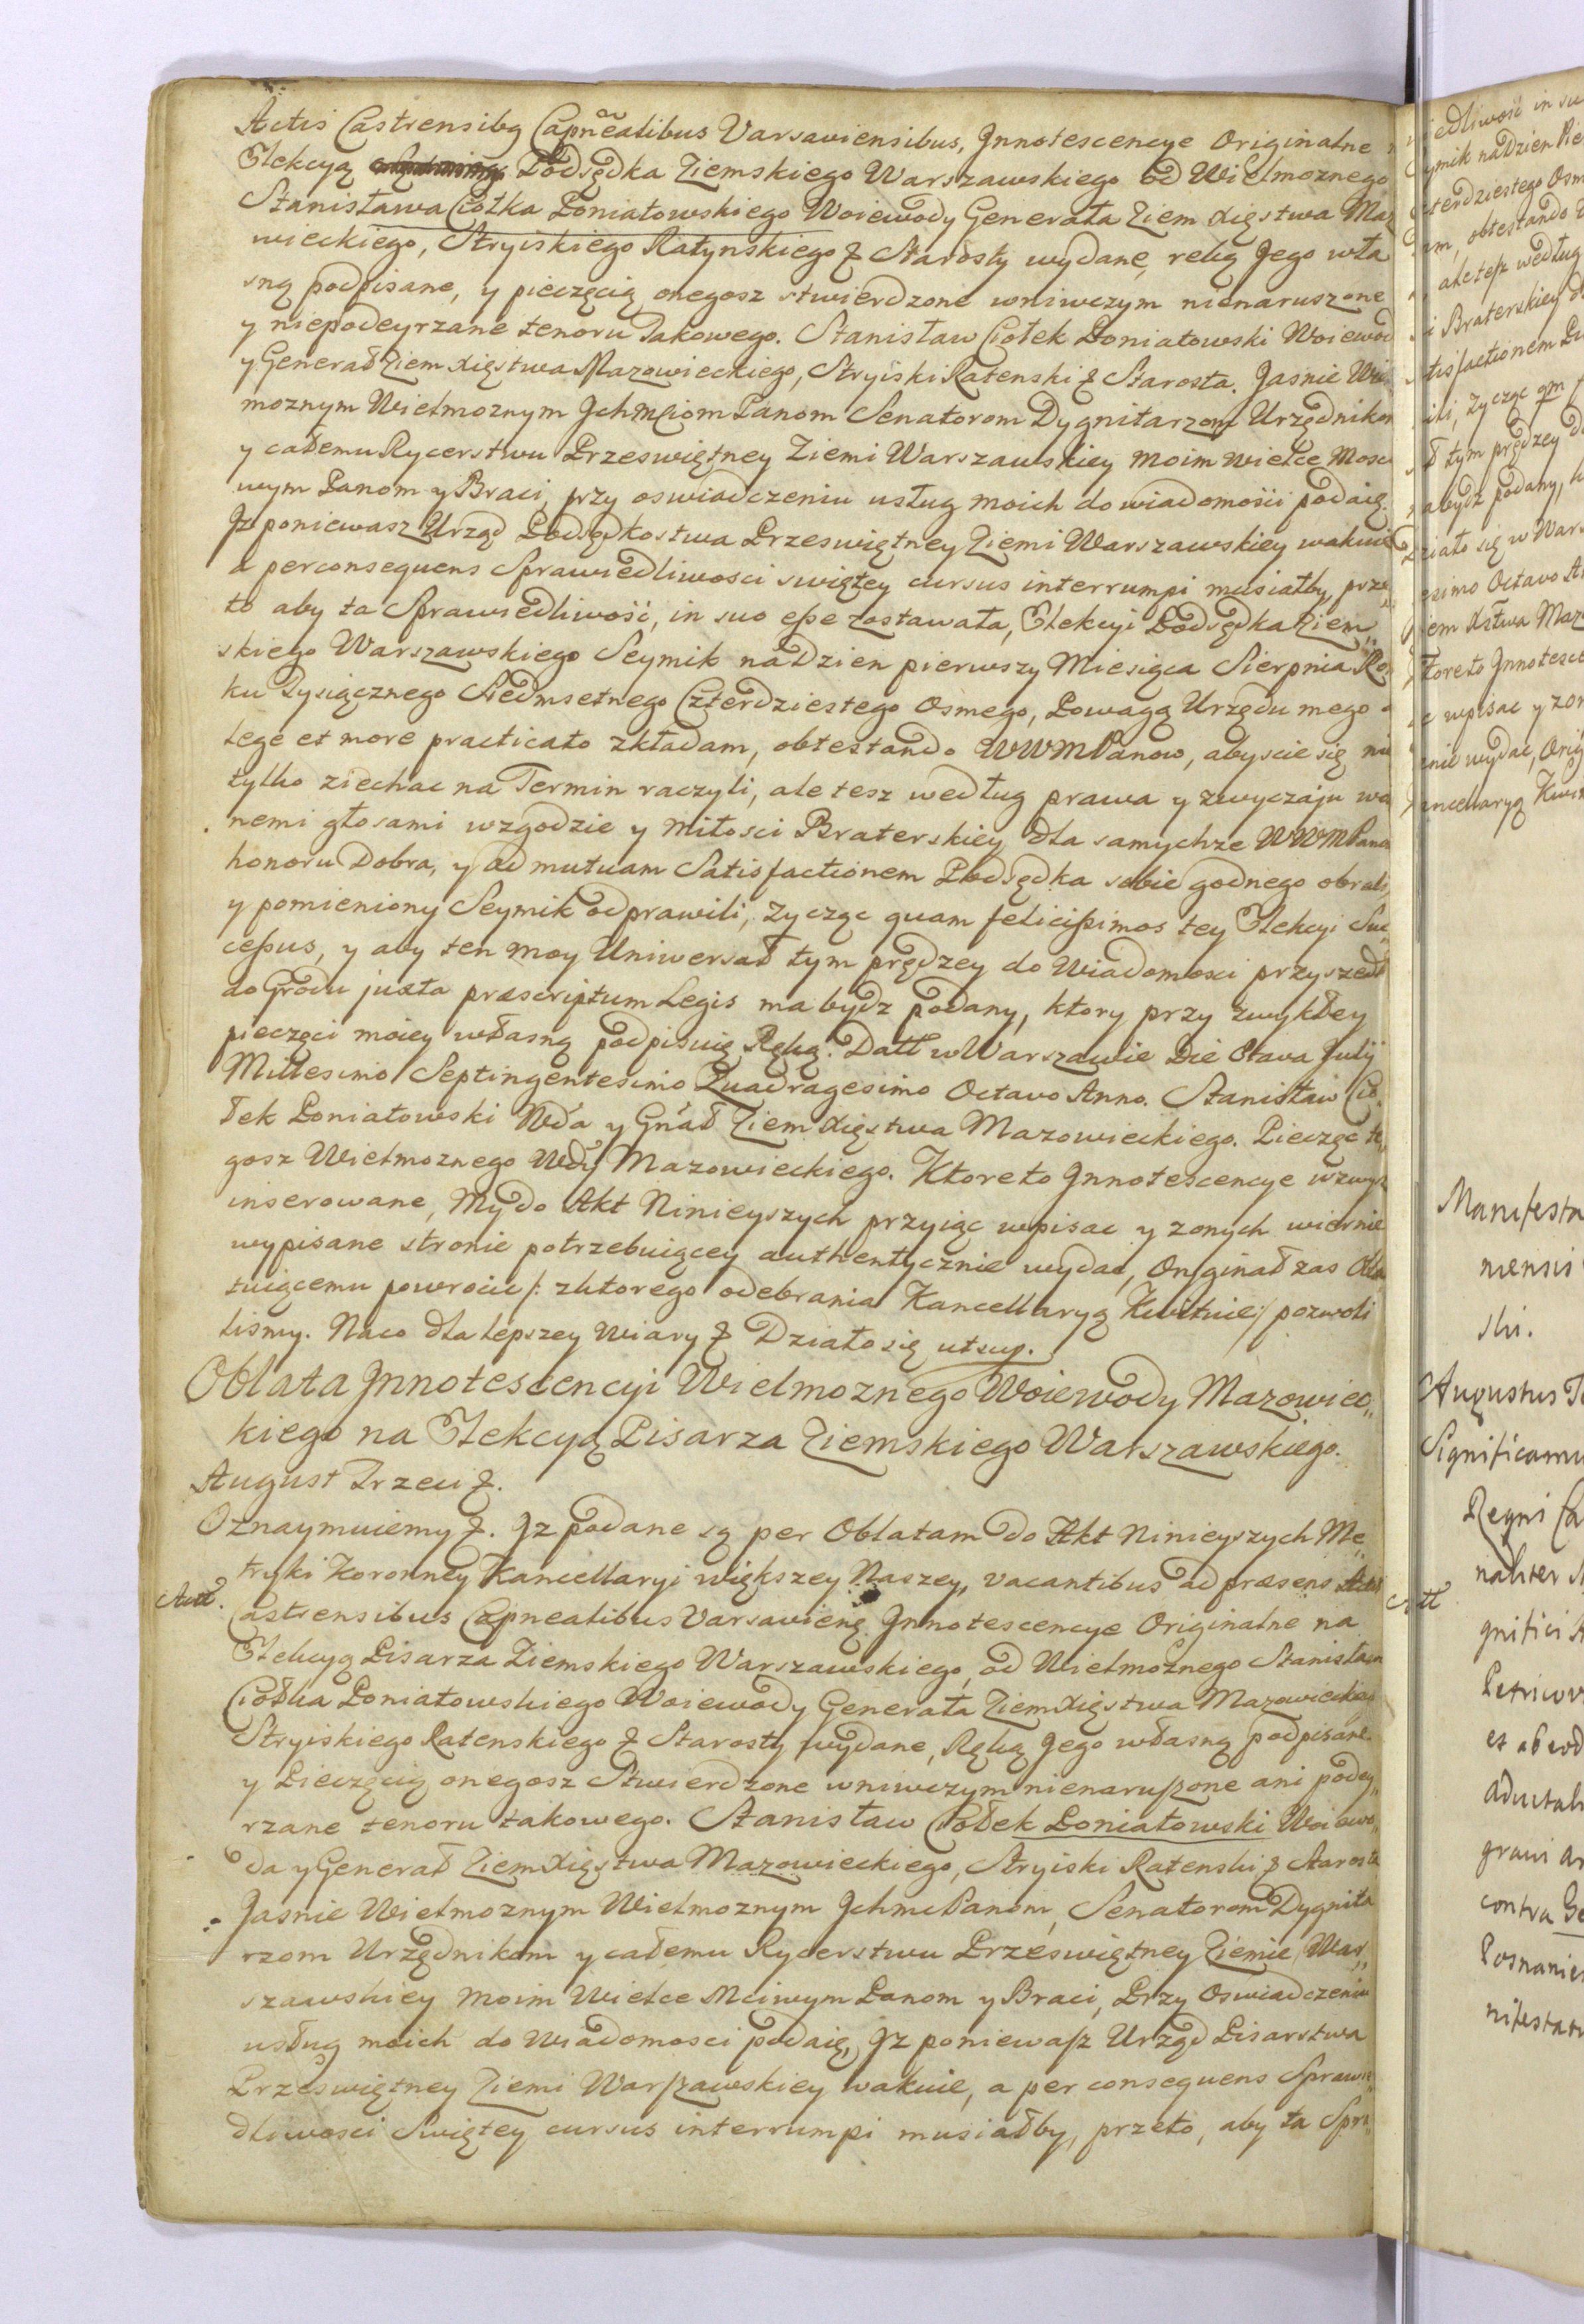 Actis Castrensibq Capnealibus Varsaviensibus, Jnnotescencye Originalne
Elekcyą Podsędka Ziemskiego Warszawskiego od Wielmoznego
Stanisława Ciołka Poniatowskiego Woiewody Generała Ziem Xięstwa Maz
wieckiego, Stryiskiego Ratynskiego & Starosty wydane, ręką Jego wła
sną podpisane, y pieczęcią onegosz stwierdzone wniwczym nienaruszone
y niepodeyrzane tenoru Takowego. Stanisław Ciołek Poniatowski Woiewod
y Generał Ziem Xięstwa Mazowieckiego, Stryiski Ratenski & Starosta. Jasnie Wiel
moznym Wielmoznym Jchmciom Panom Senatorom Dygnitarzom Urzędnikom
y całemu Rycerstwu Przeswiętney Ziemi Warszawskiey moim wielce Mosci
wym Panom y Braci, przy oswiadczeniu usług moich do wiadomości podaię.
Jz poniewasz Urząd Podsędkostwa Przeswiętney Ziemi Warszawskiey wakuie
a perconsequens Sprawiedliwosci swiętey cursus interrumpi musiałby, prze
to aby ta Sprawiedliwość, in suo esse zostawała, Elekcyi Podsędka Ziem„
skiego Warszawskiego Seymik na Dzien pierwszy Miesiąca Sierpnia Ro„
ku Tysiącznego Siedmsetnego Czterdziestego Osmego, Powagą Urzędu mego
lege et more practicato zkładam, obtestando WWMPanow, abyscie się nie
tylko ziechac na Termin raczyli, ale tesz według prawa y zwyczáju wol
nemi głosami wzgodzie y miłosci Braterskiey dla samychze WWMPanow
honoru Dobra, y ad mutuam Satisfactionem Podsędka sobie godnego obrali,
y pomieniony Seymik odprawili, zycząc quam felicissimos tey Elekcyi Suc„
cessus, y aby ten moy Uniwersał tym prędzey do Wiadomosci przyszedł
do Grodu juxta præscriptum Legis ma bydz podany, ktory przy zwykłey
pieczęci moiey własną podpisuię Ręką. Datt w Warszawie Die Otava Julÿ
Millesimo Septingentesimo Quadragesimo Octavo Anno. Stanisław Cio
łek Poniatowski Wda y Gnał Ziem Xięstwa Mazowieckiego. Pieczęc te
gosz Wielmoznego Wdy Mazowieckiego. Ktoreto Jnnotescencye wzwysz
inserowane, My do Akt Ninieyszych przyiąc wpisac y zonych wiernie
wypisane stronie potrzebuiącey authentycznie wydac, Originał zas Obla
tuiącemu powrocic /: zktorego odebrania Kancellaryą Kwituie :/ pozwoli
lismy. Naco dla lepszey wiary & Działo się ut sup.
Oblata Jnnotescencyi Wielmoznego Woiewody Mazowiec„
kiego na Elekcyą Pisarza Ziemskiego Warszawskiego.
August Trzeci &.
Oznaymuiemy &. Jz podane są per Oblatam do Akt Ninieyszych Me„
tryki Koronney Kancellaryi większey Naszey, vacantibus ad præsens Actis
Castrensibus Capnealibus Varsavieng Jnnotescencye Originalne na
Elekcyą Pisarza Ziemskiego Warszawskiego, od Wielmoznego Stanisława
Ciołka Poniatowskiego Woiewody Generała Ziem Xięstwa Mazowieckiego
Stryiskiego Ratenskiego & Starosty wydane, Ręką Jego własną podpisane
y Pieczęcią onegosz Stwierdzone wniwczym nienaruszone ani podey„
rzane tenoru takowego. Stanisław Ciołek Poniatowski Woiewo„
da y Generał Ziem Xięstwa Mazowieckiego, Stryiski Ratenski & Starosta
Jasnie Wielmoznym Wielmoznym Jchmc Panom, Senatorom Dygnita
rzom Urzędnikom y całemu Rycerstwu Przeswiętney Ziemie War„
szawskiey moim Wielce Mciwym Panom y Braci, Przy Oswiadczeniu
usług moich do Wiadomosci podaię, Jz poniewasz Urząd Pisarstwa
Przeswiętney Ziemi Warszawskiey wakuie, a per consequens Sprawie
dliwosci Swiętey cursus interrumpi musiałby, przeto, aby ta Spra„
Manifesta
mensis
ski.
Augustus
Significamu
Regni
naliter
gnifici
et ab eod
graui
contra
Posnanien
nifestatu